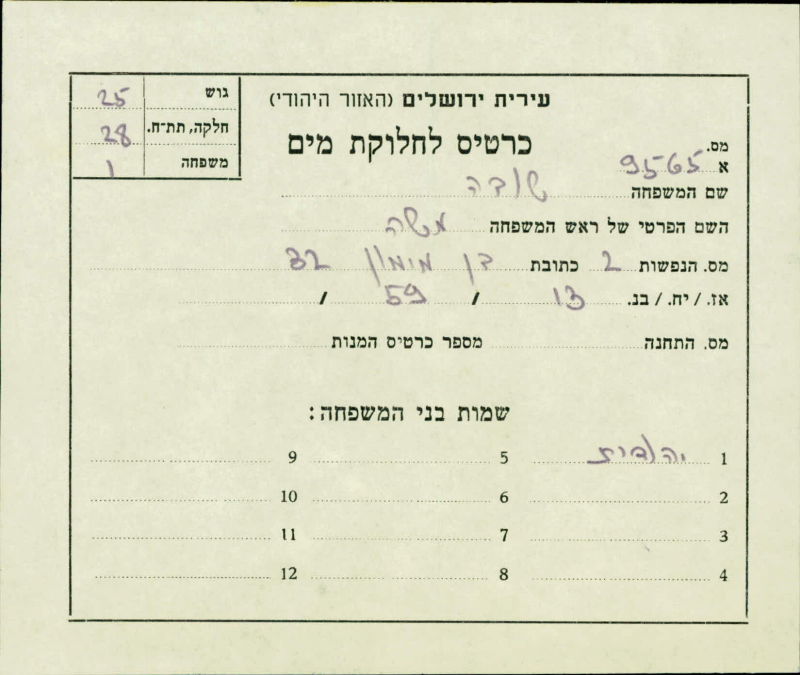 עירית ירושלים (האזור היהודי)
כרטיס לחלוקת מים
גוש 25
חלקה, תת־ח. 28
משפחה 1
מס.
א 9565
שם המשפחה
השם הפרטי של ראש המשפחה משה
מס. הנפשות 2 כתובת בן מימון 32
אז. / יח. / בנ. 13 / 59 /
מס. התחנה מספר כרטיס המנות
שמות בני המשפחה:
1 יהודית 5 9
2 6 10
3 7 11
4 8 12